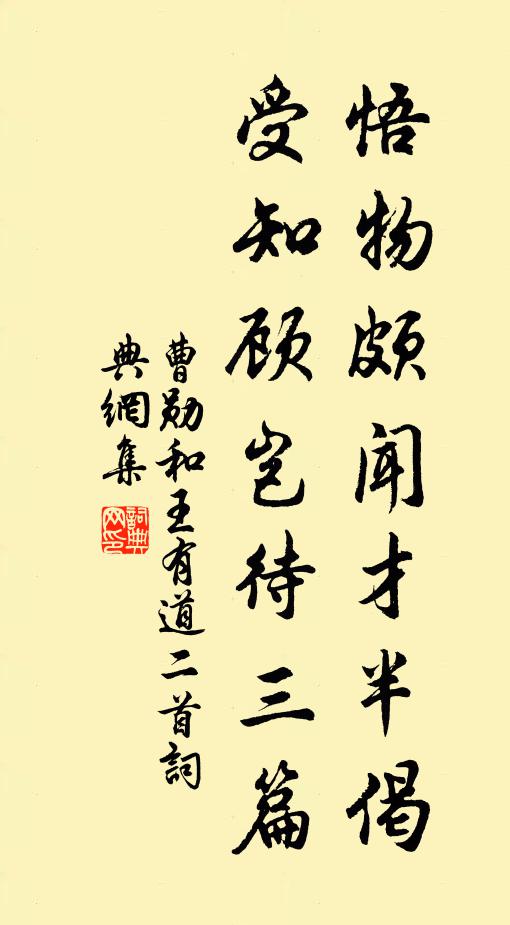 悟物頗闻才半偈
受知顾岂待三篇
曹勋和王有道二首詞
典網集
詞典
网印